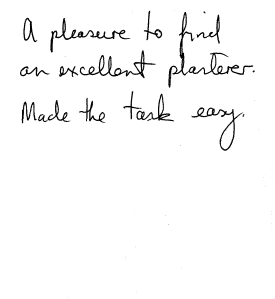 A pleasure to find
an excellent plasterer.
Made the task easy.